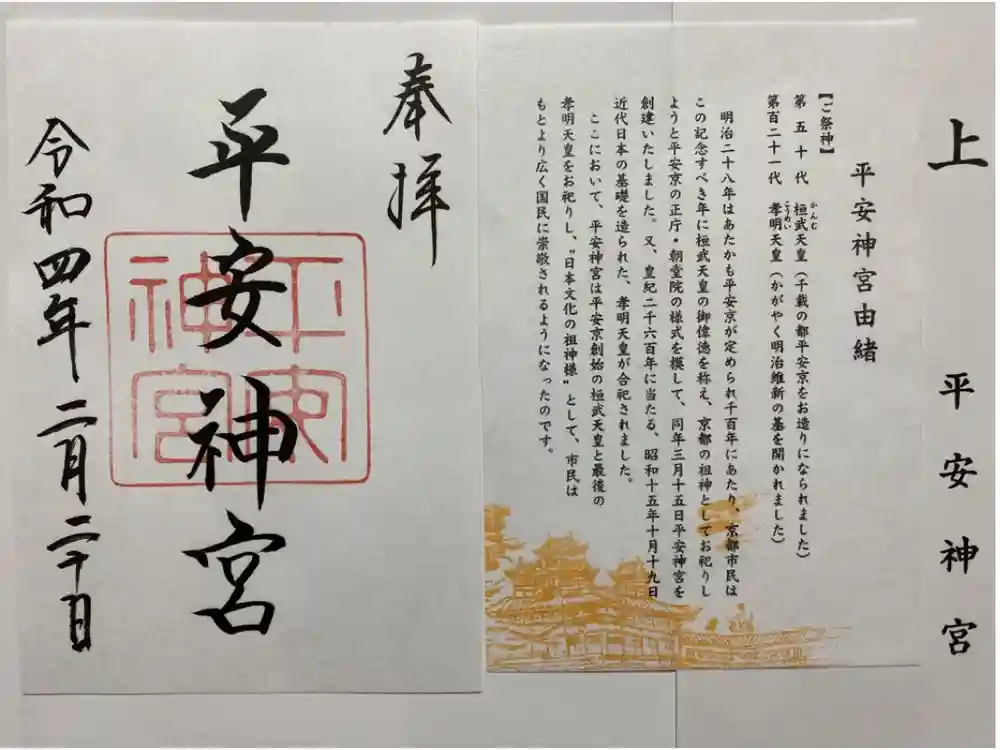 上
平安神宮
平安神宮由緒
【ご祭神】
第五十代 桓武天皇（千載の都平安京をお造りになられました）
かんむ
第百二十一代 孝明天皇（かがやく明治維新の基を開かれました）
こうめい
明治二十八年はあたかも平安京が定められ千百年にあたり、京都市民は
この記念すべき年に桓武天皇の御偉徳を称え、京都の祖神としてお祀りし
ようと平安京の正庁・朝堂院の様式を模して、同年三月十五日平安神宮を
創建いたしました。又、皇紀二千六百年に当たる、昭和十五年十月十九日
近代日本の基礎を造られた、孝明天皇が合祀されました。
ここにおいて、平安神宮は平安京創始の桓武天皇と最後の
孝明天皇をお祀りし、“日本文化の祖神様”として、市民は
もとより広く国民に崇敬されるようになったのです。
奉拝
平安神宮
平安
神宮
令和四年二月二十日